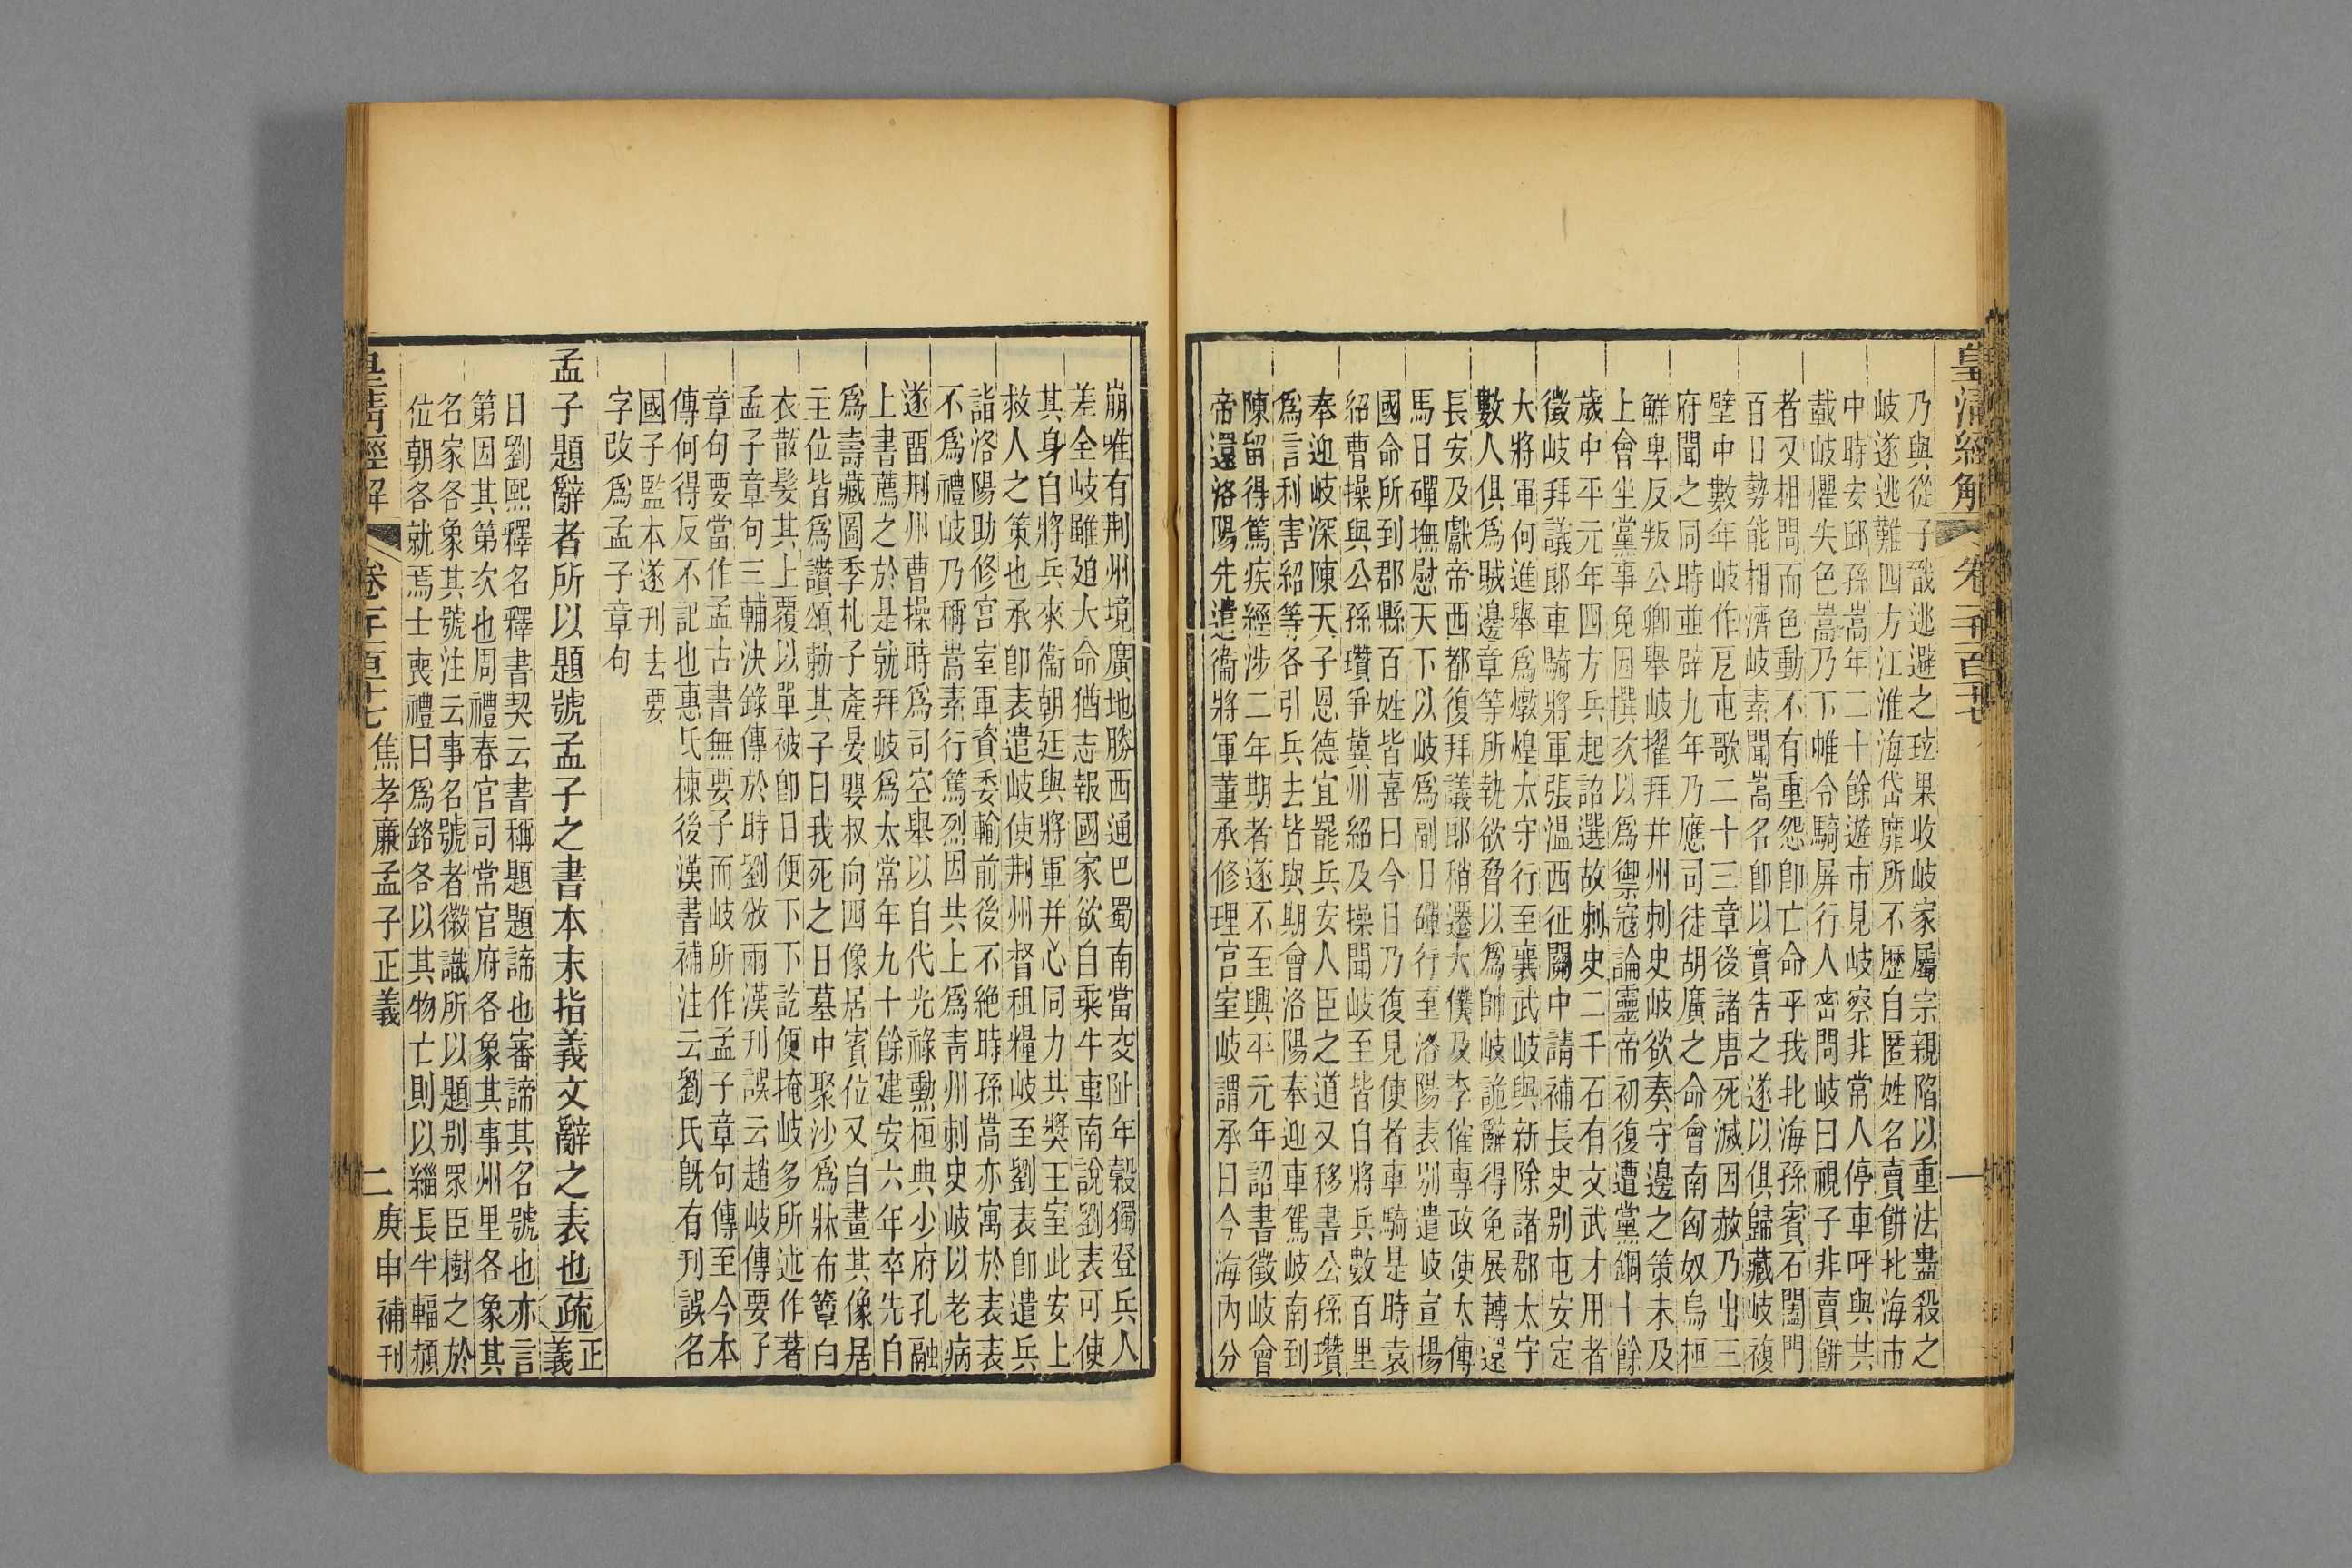 皇清經解
卷一千一百十七
一
乃與從子戩逃避之玹果收岐家屬宗親陷以重法盡殺之
岐遂逃難四方江淮海岱靡所不歷自匿姓名賣餅北海市
中時安邱孫嵩年二十餘遊市見岐察非常人停車呼與共
載岐懼失色嵩乃下帷令騎屏行人密問岐曰視子非賣餅
者又相問而色動不有重怨卽亡命乎我北海孫賓石闔門
百口勢能相濟岐素聞嵩名卽以實告之遂以俱歸藏岐複
壁中數年岐作戹屯歌二十三章後諸唐死滅因赦乃出三
府聞之同時並辟九年乃應司徒胡廣之命會南匈奴烏桓
鮮卑反叛公卿舉岐擢拜并州刺史岐欲奏守邊之策未及
上會坐黨事免因撰次以爲禦寇論靈帝初復遭黨錮十餘
歲中平元年四方兵起詔選故刺史二千石有文武才用者
徵岐拜議郎車騎將軍張温西征關中請補長史别屯安定
大將軍何進舉爲燉煌太守行至襄武岐與新除諸郡太守
數人俱爲賊邊章等所執欲脅以爲帥岐詭辭得免展轉還
長安及獻帝西都復拜議郎稍遷太僕及李傕專政使太傅
馬日磾撫慰天下以岐爲副日磾行至洛陽表别遣岐宣揚
國命所到郡縣百姓皆喜曰今日乃復見使者車騎是時袁
紹曹操與公孫瓚爭冀州紹及操聞岐至皆自將兵數百里
奉迎岐深陳天子恩德宜罷兵安人臣之道又移書公孫瓚
爲言利害紹等各引兵去皆與期會洛陽奉迎車駕岐南到
陳留得篤疾經涉二年期者遂不至興平元年詔書徵岐會
帝還洛陽先遣衞將軍董承修理宫室岐謂承曰今海內分
崩唯有荆州境廣地勝西通巴蜀南當交阯年穀獨登兵人
差全岐雖廹大命猶志報國家欲自乘牛車南說劉表可使
其身自將兵來衞朝廷與將軍并心同力共奬王室此安上
救人之策也承卽表遣岐使荆州督租糧岐至劉表卽遣兵
詣洛陽助修宫室軍資委輸前後不絶時孫嵩亦寓於表表
不爲禮岐乃稱嵩素行篤烈因共上爲青州刺史岐以老病
遂畱荆州曹操時爲司空舉以自代光祿勳桓典少府孔融
上書薦之於是就拜岐爲太常年九十餘建安六年卒先自
爲壽藏圖季札子產晏嬰叔向四像居賓位又自畫其像居
主位皆爲讚頌勑其子曰我死之日墓中聚沙爲牀布簟白
衣散髮其上覆以單被卽日便下下訖便掩岐多所述作著
孟子章句三輔決錄傳於時劉攽兩漢刊誤云趙岐傳要子
章句要當作孟古書無要子而岐所作孟子章句傳至今本
傳何得反不記也惠氏棟後漢書補注云劉氏旣有刊誤名
國子監本遂刊去要
字改爲孟子章句
孟子題辭者所以題號孟子之書本末指義文辭之表也疏正義
曰劉熙釋名釋書契云書稱題題諦也審諦其名號也亦言
第因其第次也周禮春官司常官府各象其事州里各象其
名家各象其號注云事名號者徽識所以題别眾臣樹之於
位朝各就焉士喪禮曰爲銘各以其物亡則以緇長半輻頳
皇清經解
卷一千一百十七
焦孝廉孟子正義
二
庚申補刊